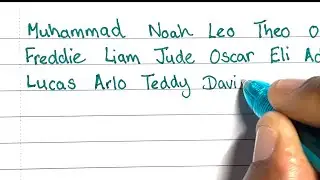 Muhammad Noah Leo Theo O
Freddie Liam Jude Oscar Eli Ad
Lucas Arlo Teddy Davi